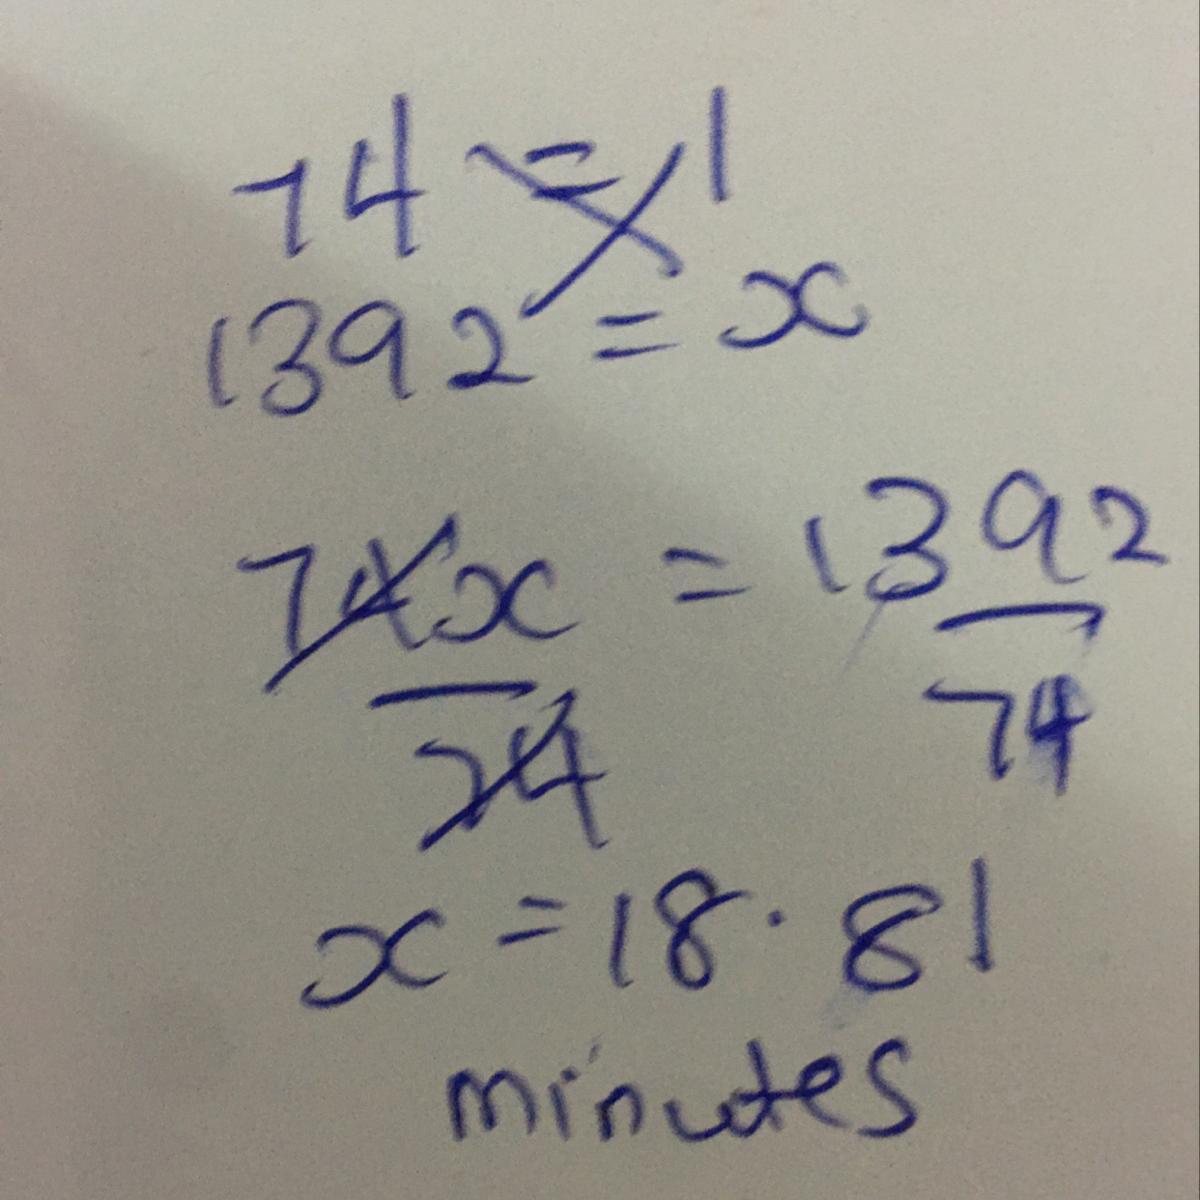 74 = 1
1392 = x
74x = 1392
74 74
x = 18.81
minutes